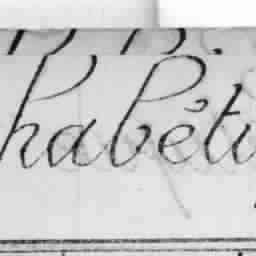 habéti